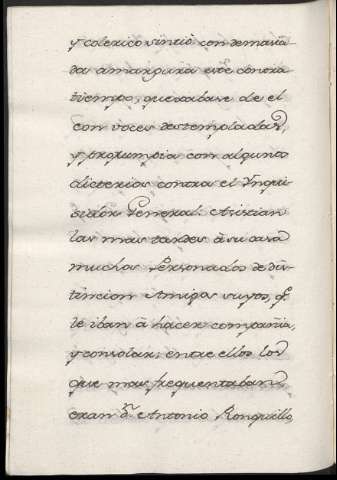 y colerico sintió con demasia
da amargura este contra
tiempo, quexabase de el
con voces destempladas,
y prorrumpia con algunos
dicterios contra el Ynqui
sidor General. Asistian
las mas tardes à su casa
muchos Personados de dis
tincion Amigos suyos, q.e
le iban â hacer compañia,
y consolar; entre ellos los
que mas frequentaban,
eran D.n Antonio Ronquillo,